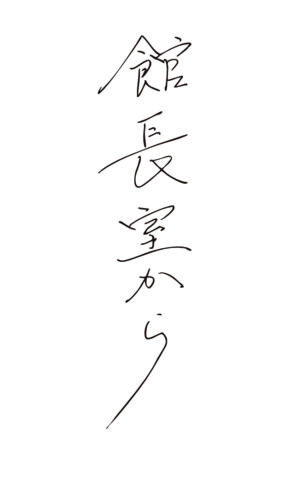 館長室から